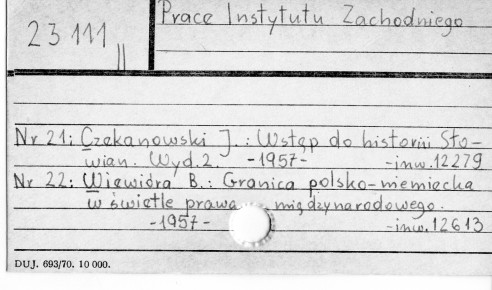 Prace Instytutu Zachodniego
23 111 II
Nr 21: Czekanowski J.: Wstęp do historii Sło-
wian. Wyd. 2. -1957- -inw. 12279
Nr 22: Wiewióra B.: Granica polsko-niemiecka
w świetle prawa międzynarodowego.
-1957- -inw. 12613
DUJ. 693/70. 10 000.